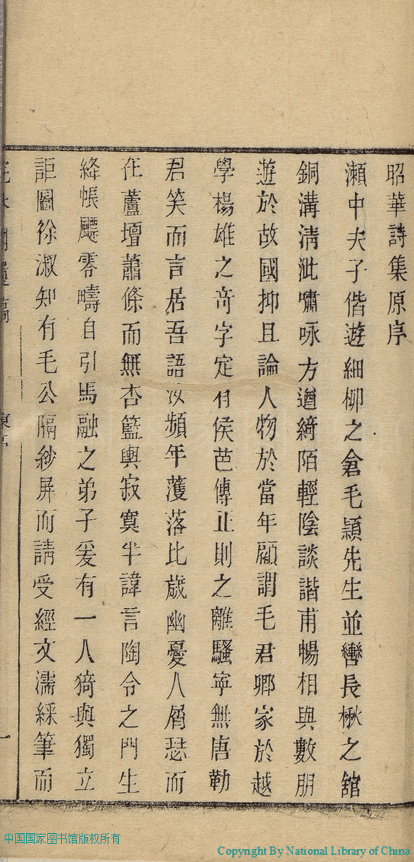 昭華詩集原序
瀨中夫子偕遊細柳之倉毛穎先生並轡長楸之舘
銅溝淸泚嘯咏方遒綺陌輕陰談諧甫暢相與數朋
遊於故國抑且論人物於當年顧謂毛君卿家於越
學楊雄之奇字定有侯芭傳正則之離騷寧無唐勒
君笑而言居吾語汝頻年蒦落比歲幽憂人屑瑟而
在蘆壇蕭條而無杏籃輿寂寞半諱言陶令之門生
絳帳飃零疇自引馬融之弟子爰有一人猗與獨立
詎圖徐淑知有毛公隔紗屏而請受經文濡綵筆而
一
中国国家图书馆版权所有
Copyright By National Library of China